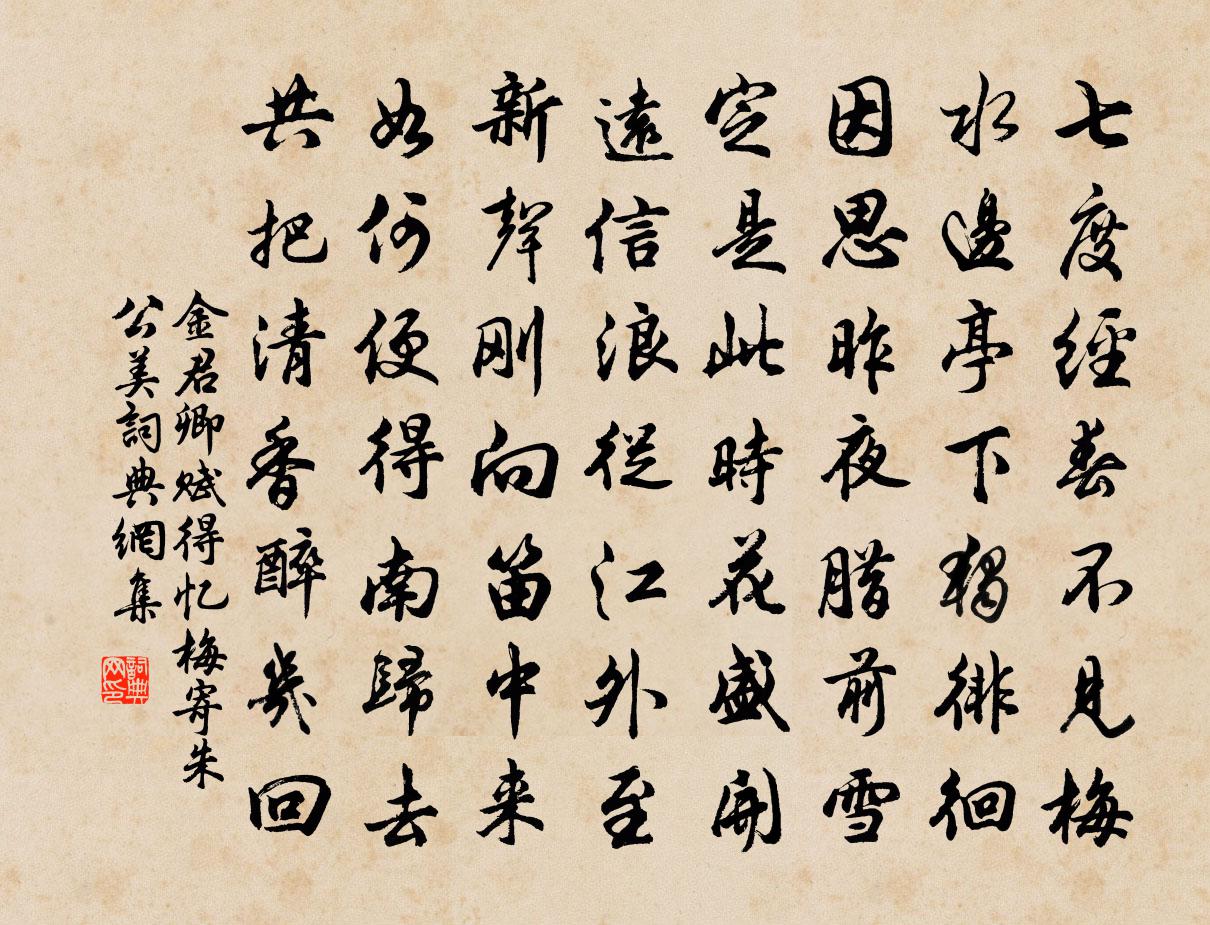 七度經春不見梅
水邊亭下獨徘徊
因思昨夜臘前雪
定是此時花盛開
遠信浪從江外至
新聲剛向笛中来
如何便得南歸去
共把清香醉幾回
金君卿賦得忆梅寄朱
公美詞典網集
詞典
网印